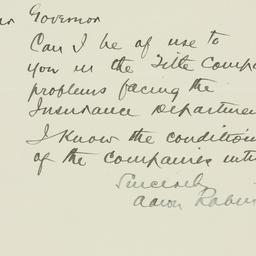 Governor
Can I be of use to
you in the Title Compa
problems facing the
Insurance Departmen
I know the condition
of the companies inti
Sincerely
Aaron Rabin